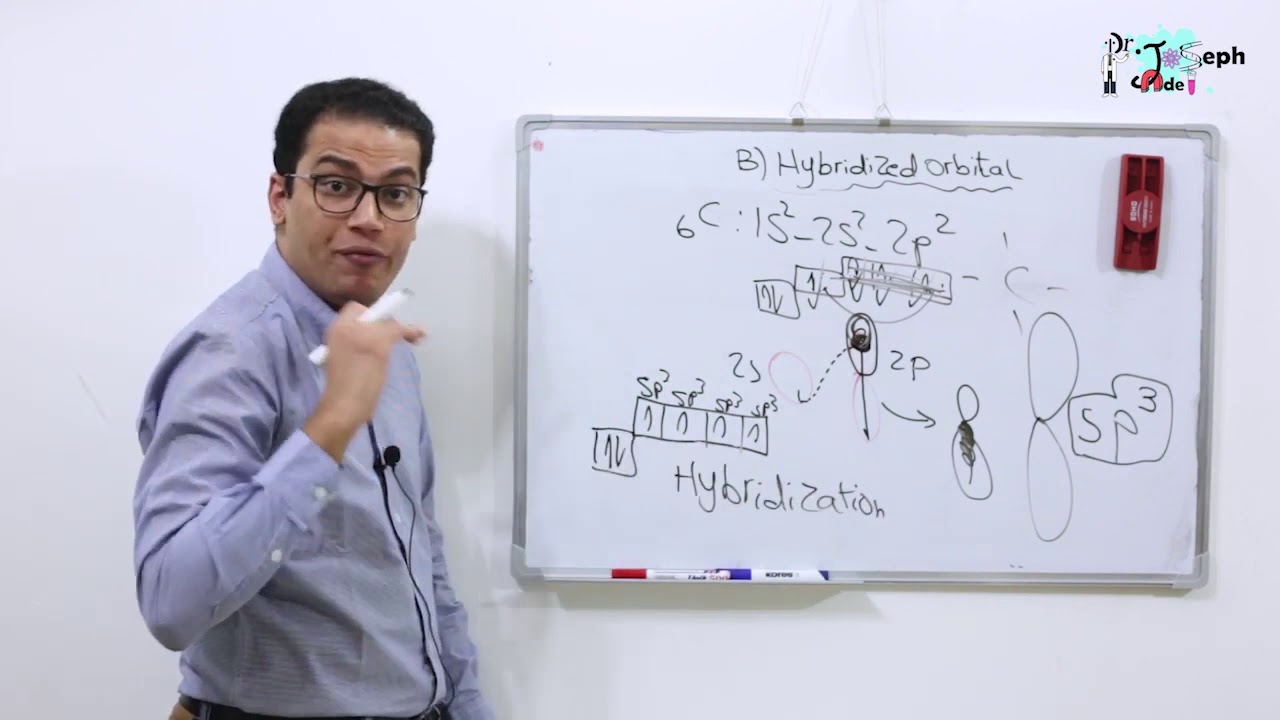 Dr. Joseph
Nade
B) Hybridized orbital
6C : 1S² - 2S² - 2p²
- C -
2s
2p
sp³ sp³ sp³ sp³
Sp³
Hybridization
KORES